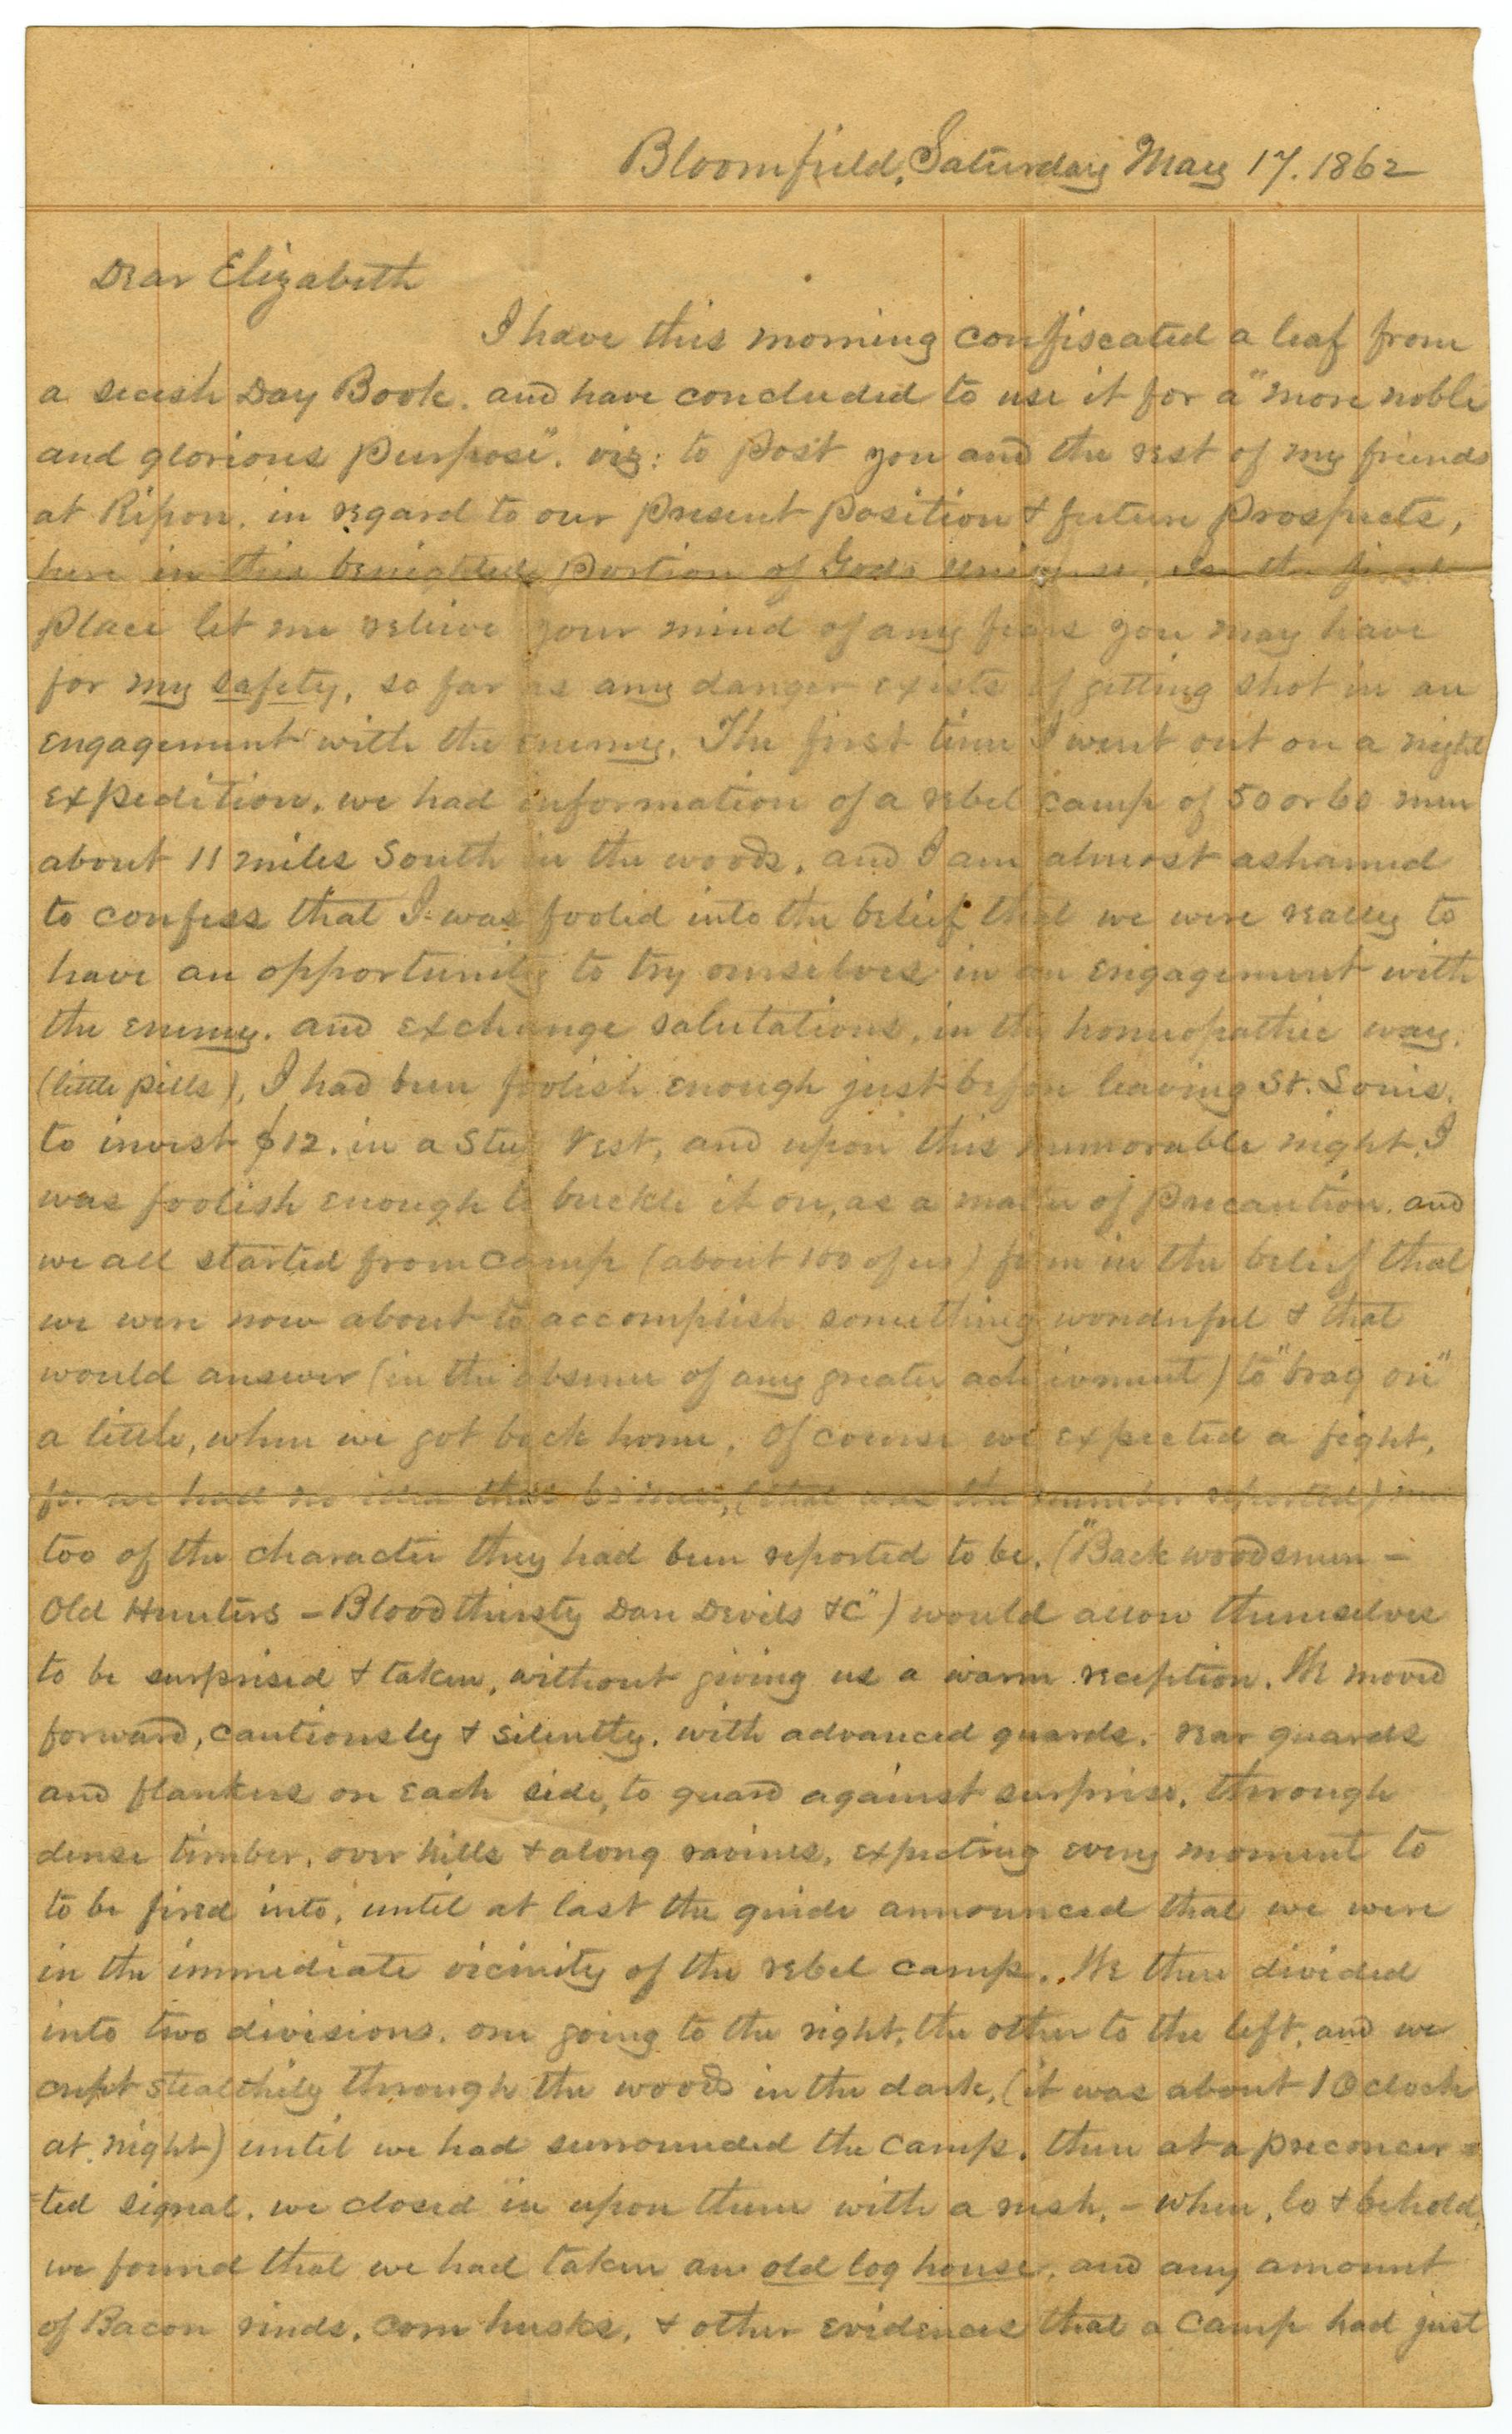 Bloomfield, Saturday May 17. 1862
Dear Elizabeth
I have this morning confiscated a leaf from
a secesh Day Book. and have concluded to use it for a "more noble
and glorious purpose". viz: to post you and the rest of my friends
at Ripon. in regard to our present position & future prospects,
here in this benighted portion of Gods Universe. In the first
place let me relieve your mind of any fears you may have
for my safety, so far as any danger exists of getting shot in an
engagement with the enemy. The first time I went out on a night
expedition. we had information of a rebel camp of 50 or 60 men
about 11 miles South in the woods. and I am almost ashamed
to confess that I was fooled into the belief that we were really to
have an opportunity to try ourselves in an engagement with
the enemy. and exchange salutations. in the homeopathic way.
(little pills), I had been foolish enough just before leaving St. Louis.
to invest $12. in a Steel Vest, and upon this memorable night, I
was foolish enough to buckle it on, as a matter of precaution. and
we all started from camp (about 100 of us) firm in the belief that
we were now about to accomplish something wonderful & that
would answer (in the absence of any greater achievment) to "brag on"
a little, when we got back home. Of course we expected a fight,
for we had no idea that 60 men, (that was the number reported)
too of the character they had been reported to be. ("Back woodsmen –
Old Hunters – Blood thirsty Dare Devils &c") would allow themselves
to be surprised & taken, without giving us a warm reception. We moved
forward, cautiously & silently. with advanced guards. rear guards
and flankers on each side, to guard against surprise. through
dense timber, over hills & along ravines, expecting every moment to
to be fired into, until at last the guide announced that we were
in the immediate vicinity of the rebel camp. We then divided
into two divisions. one going to the right, the other to the left, and we
crept stealthily through the woods in the dark, (it was about 1 Oclock
at night) until we had surrounded the camp. then at a preconcer=
=ted signal. we closed in upon them with a rush, – when, lo & behold,
we found that we had taken an old log house, and any amount
of Bacon rinds. corn husks, & other evidences that a camp had just